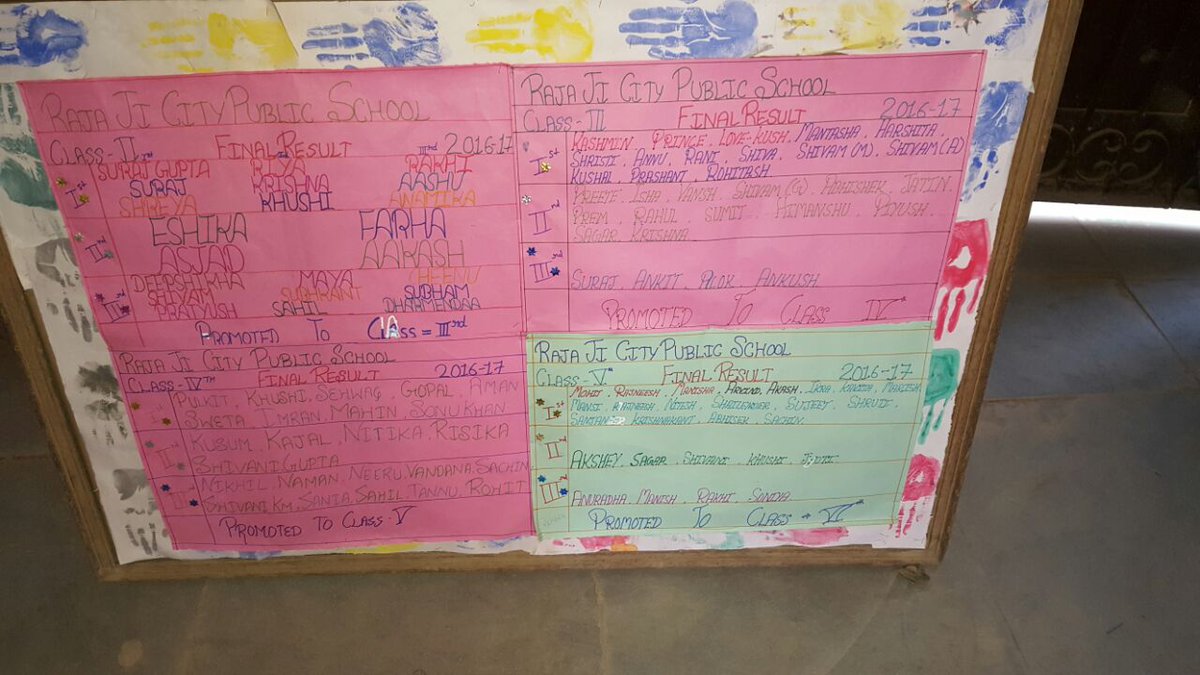 RAJA JI CITY PUBLIC SCHOOL
CLASS-II FINAL RESULT 2016-17
Ist IInd IIIrd
SURAJ GUPTA RIYA RAKHI
Ist SURAJ KRISHNA AASHU
SHREYA KHUSHI ANAMIKA
ESHIKA FARHA
IInd ASJAD AAKASH
DEEPSHIKHA MAYA CHEENU
SHIVAM SUBHAM
IIIrd PRATYUSH SAHIL DHARMENDAA
PROMOTED TO CLASS = IIIrd
RAJA JI CITY PUBLIC SCHOOL
CLASS-III FINAL RESULT 2016-17
KASHMIN PRINCE, LOVE-KUSH, MANTASHA, HARSHITA,
Ist SHRISTI, ANNU, RANI, SHIVA, SHIVAM (M), SHIVAM (A)
KUSHAL, PRASHANT, ROHITASH,
PREETI, ISHA, VANSH, SHIVAM (G), ABHISHEK, JATIN,
II PREM, RAHUL SUMIT, HIMANSHU, PIYUSH,
SAGAR KRISHNA
III SURAJ, ANKIT, ALOK, ANKUSH
PROMOTED TO CLASS IVth
RAJA JI CITY PUBLIC SCHOOL
CLASS-IVTH FINAL RESULT 2016-17
PULKIT, KHUSHI, SEHWAG, GOPAL, AMAN
Ist SWETA, IMRAN, MAHIN, SONU KHAN
KUSUM, KAJAL, NITIKA, RISIKA
II SHIVANI GUPTA
NIKHIL, NAMAN, NEERU, VANDANA, SACHIN
III SHIVANI KM, SANIA, SAHIL, TANNU, ROHIT
PROMOTED TO CLASS-V
RAJA JI CITY PUBLIC SCHOOL
CLASS-Vth FINAL RESULT 2016-17
MOHIT, RAJNEESH, MANISHA, ARVIND, AKASH, MUKESH,
Ist MANSI, RAJNEESH, NITESH, SHAILENDER, SUJEET, SHRUTI,
KRISHNAKANT, ABHISEK, SACHIN,
IInd AKSHEY, SAGAR, SHIVANI, KHUSHI, JYOTI
IIIrd ANURADHA, MANISH, RAKHI, SONIA
PROMOTED TO CLASS → VIth